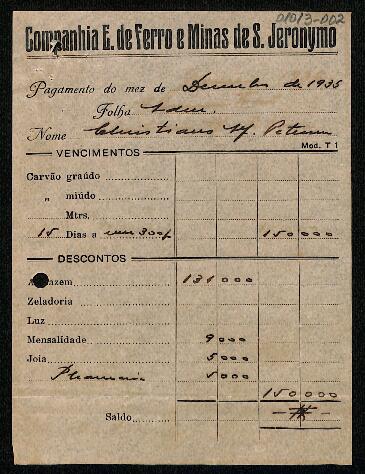 01013-002
Companhia E. de Ferro e Minas de S. Jeronymo
Pagamento do mez de Dezembro de 1935
Folha Adm.
Nome Christiano
Mod. T 1
VENCIMENTOS
Carvão graúdo
„ miúdo
Mtrs.
15 Dias a 300$ 150000
DESCONTOS
Armazem 131000
Zeladoria
Luz
Mensalidade 9000
Joia 5000
Pharmacia 5000
150000
Saldo